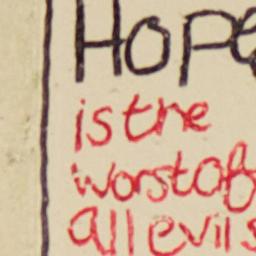 HOPe
is the
worst of
all evils